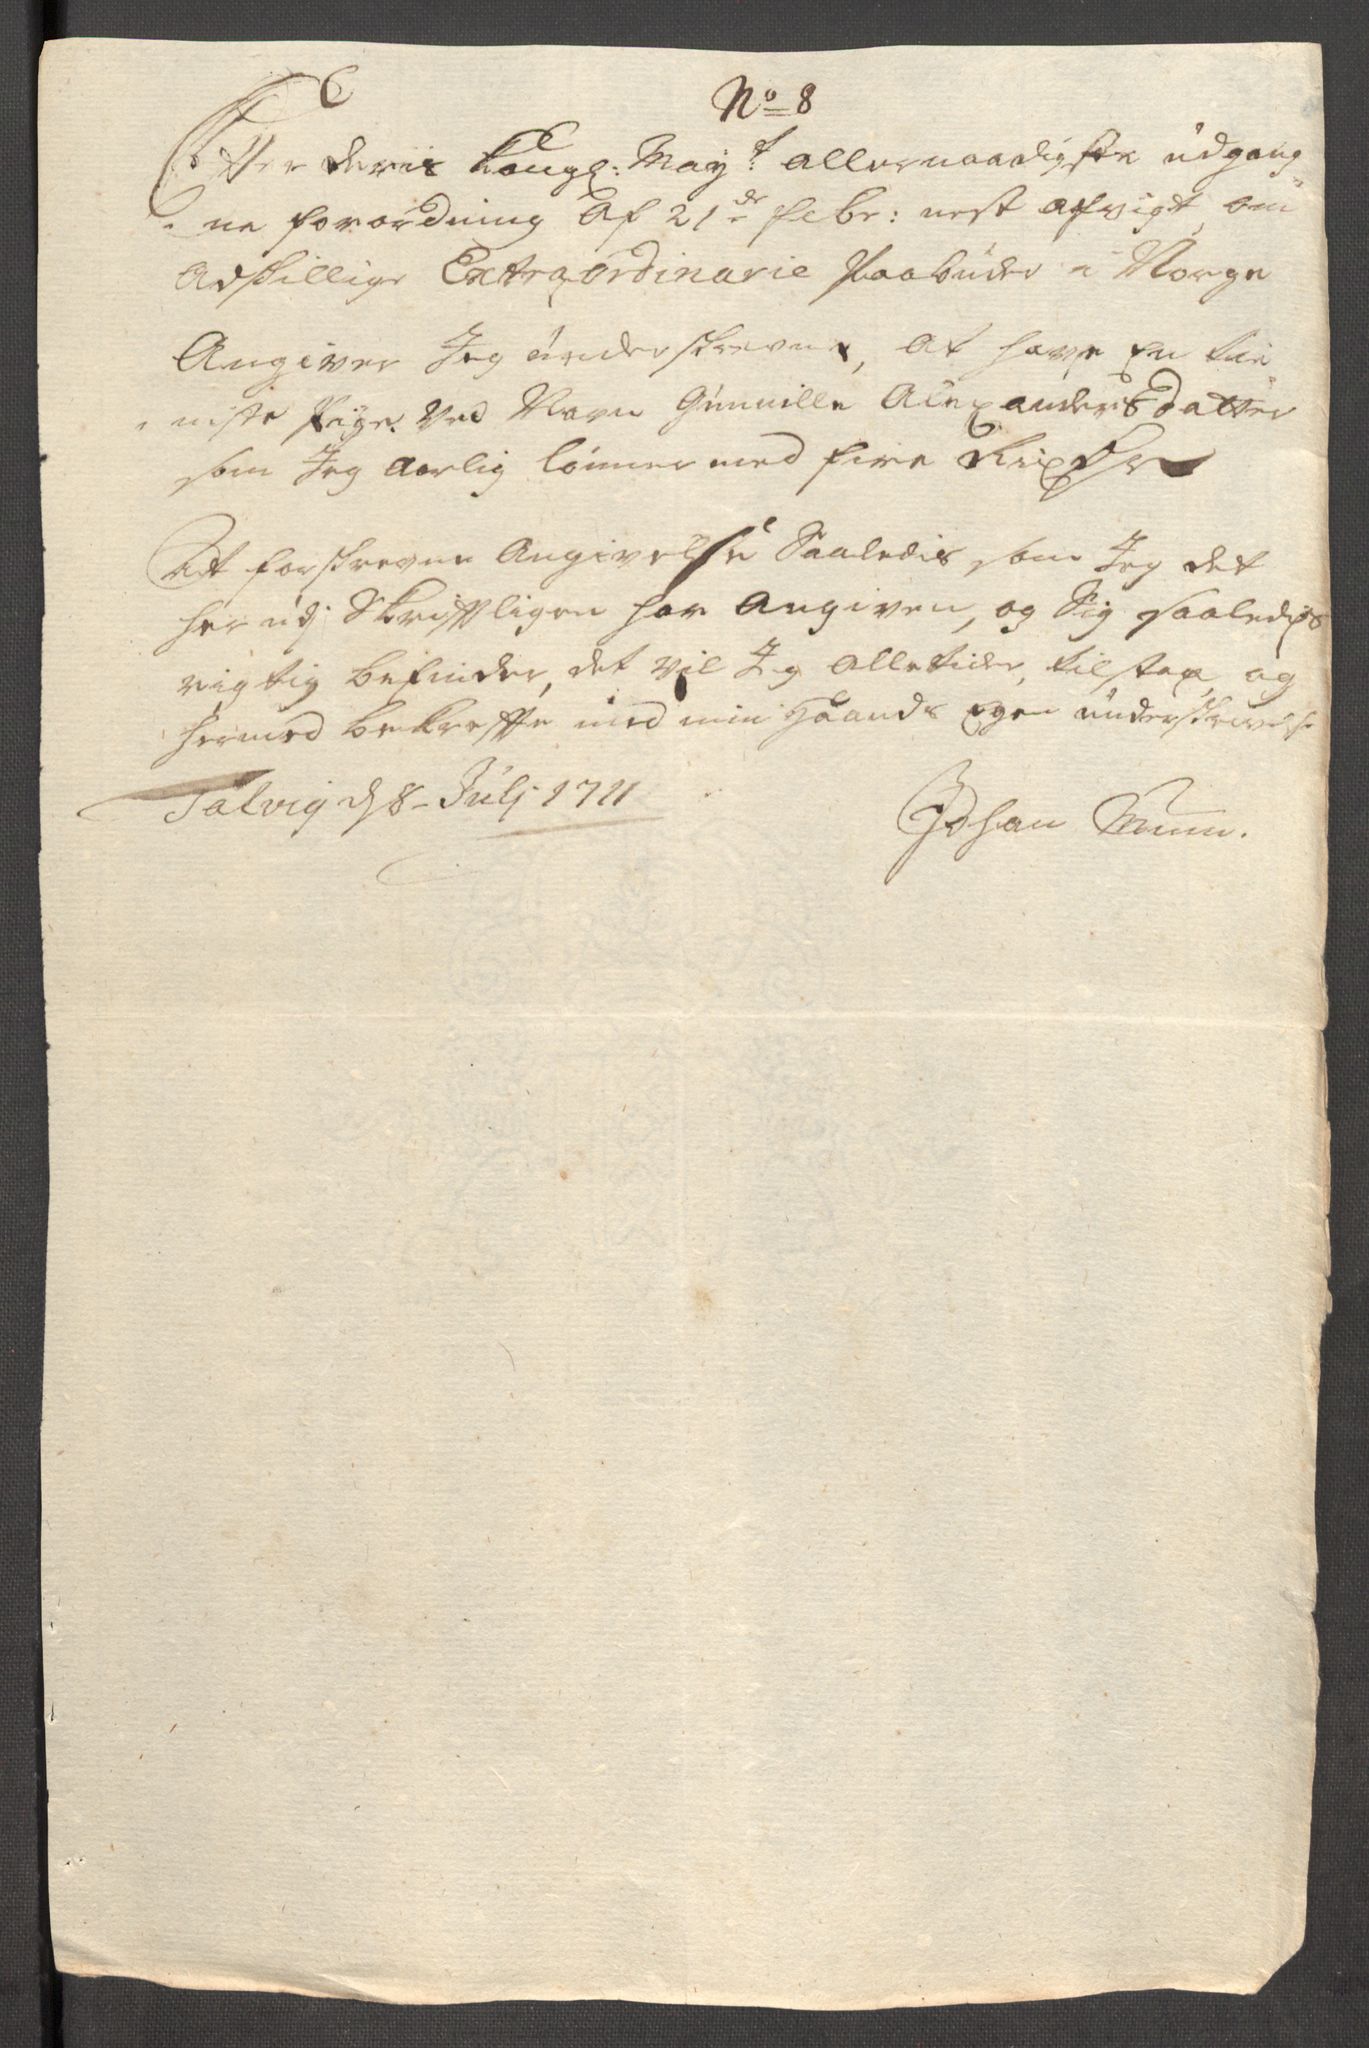 No 8
Efter deris Kongl: Mayt: allernaadigste üdgang-
ne forordning Af 21de febr: nest afvigt, om
Adskillige Extraordinarie Paabuder i Norge
Angiver Jeg ünderskrevne, at have En tie-
niste Pige ved Navn Günnille Alexanders Datter
som Jeg Aarlig lønner med fire Rixdr
At forskrevne Angivelse Saaledis som Jeg det
her udj Skrifftligen har Angiven, og Sig saaledis
rigtig befinder, det vil Jeg Alletider tilstaa og
hermed bekreffte med min Haands Egen ünderskrivelse
Talvig d 8 Julj 1711
Johan Mum.